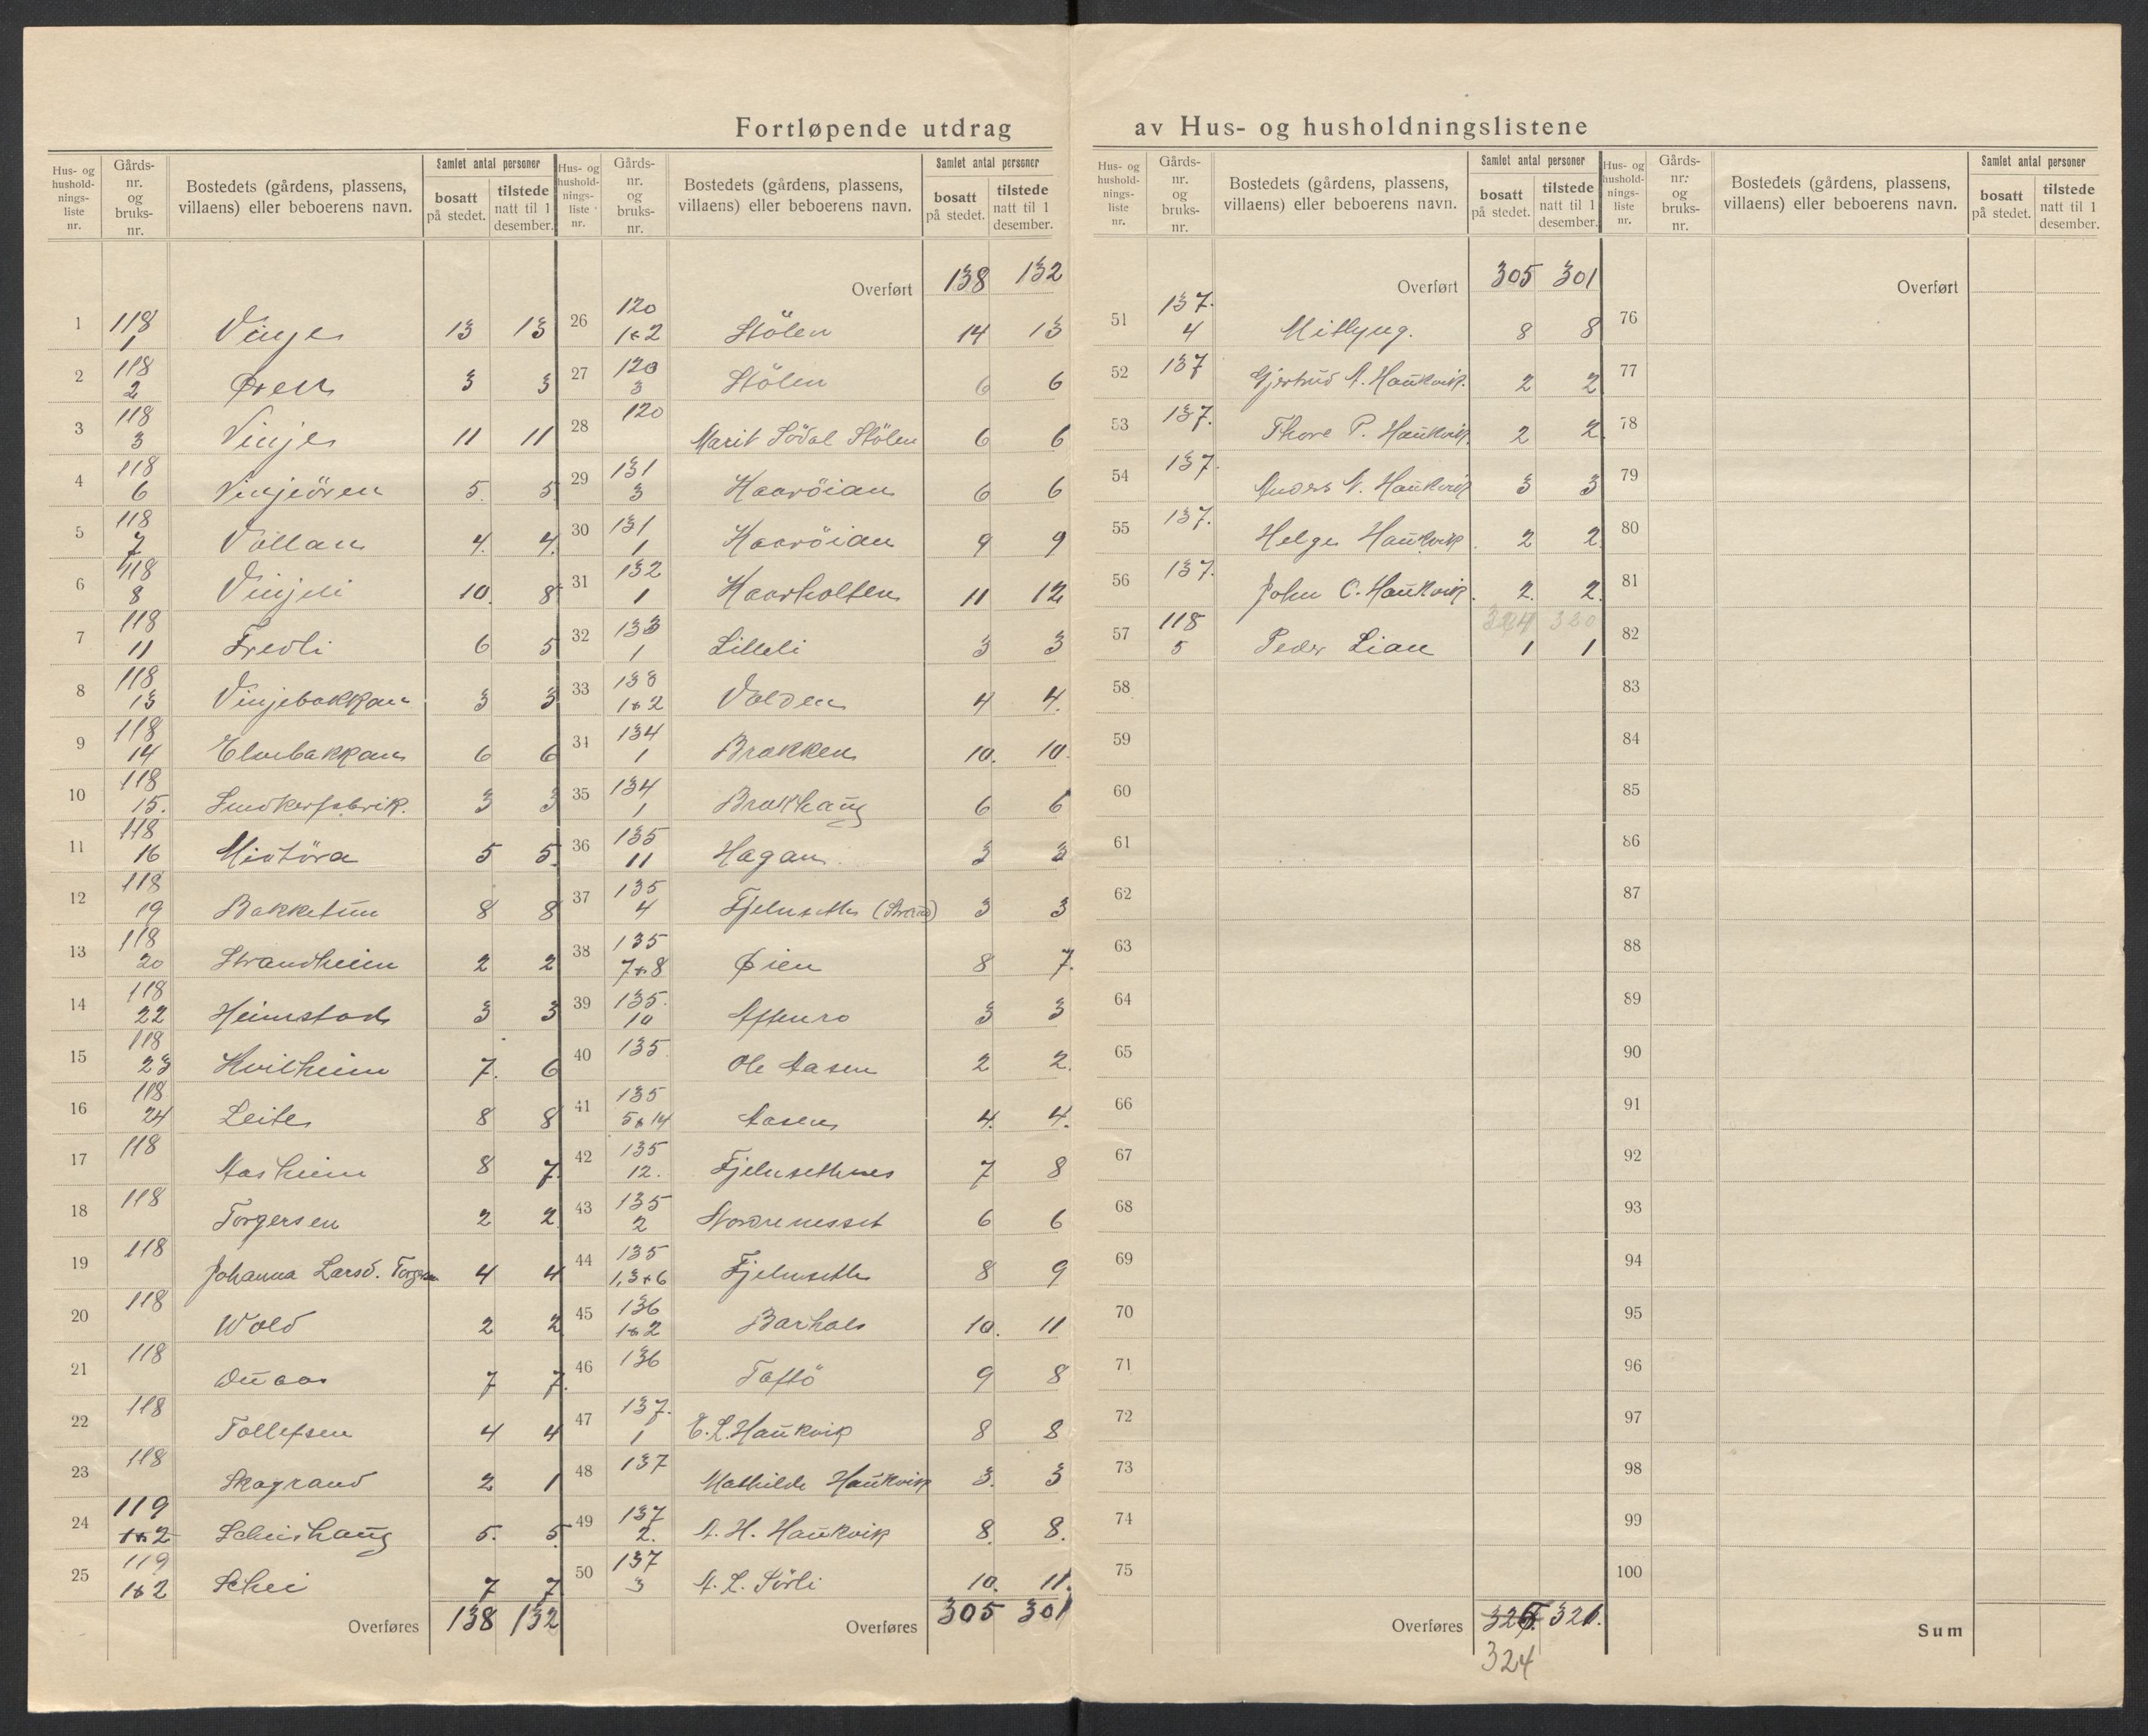 Fortløpende utdrag av Hus- og husholdningslistene
Hus- og husholdnings-liste nr. Gårds-nr. og bruks-nr. Bostedets (gårdens, plassens, villaens) eller beboerens navn. Samlet antal personer bosatt på stedet. tilstede natt til 1 desember.
1 118 1 Vinje 13 13
2 118 2 Øren 3 3
3 118 3 Vinje 11 11
4 118 6 Vinjeören 5. 5.
5 118 7 Vollan 4. 4.
6 118 8 Vinjeli 10. 8
7 118 11 Fredli 6 5
8 118 13 Vinjebakkan 3 3
9 118 14 Elvebakkan 6 6
10 118 15. Snedkerfabrik. 3 3
11 118 16 Midtöra 5 5.
12 118 19 Bakketun 8 8
13 118 20 Strandheim 2 2
14 118 22 Heimstad 3 3
15 118 23 Hvilheim 7. 6
16 118 24 Leite 8 8
17 118 Aasheim 8 7.
18 118 Torgersen 2 2.
19 118 Johanna Larsd. 4 4
20 118 Wold 2 2
21 118 7 7.
22 118 Tollefsen 4 4
23 118 Skogrand 2 1
24 119 1&2 Scheishaug 5. 5
25 119 1&2 Schei 7 7
Overføres 138 132
Hus- og husholdnings-liste nr. Gårds-nr. og bruks-nr. Bostedets (gårdens, plassens, villaens) eller beboerens navn. Samlet antal personer bosatt på stedet. tilstede natt til 1 desember.
Overført 138 132
26 120 1&2 Stölen 14 13
27 120 3 Stölen 6 6
28 120 Marit Södal Stölen 6 6
29 131 3 Haaröian 6 6
30 131 1 Haaröian 9 9
31 132 1 Haarholten 11 12
32 133 1 Lilleli 3 3
33 133 1&2 Volden 4 4.
34 134 1 Brakken 10. 10.
35 134 1 Brakhaug 6 6
36 135 11 Hagan 3 3
37 135 4 Fjelnseth 3 3
38 135 7&8 Øien 8 7.
39 135. 10 Aftenro 3 3
40 135. Ole Aasen 2 2.
41 135 5&14 Aasen 4. 4.
42 135 12. Fjelnsethnes 7 8
43 135 2 6 6
44 135 1,3&6 Fjelnseth 8 9
45 136 1&2 Barhals 10. 11
46 136 Taftö 9 8
47 137. 1 E. L. Haukvik 8 8
48 137 Mathilde Haukvik 3. 3
49 137 2. A. H. Haukvik 8. 8.
50 137 3 A. L. Sörli 10. 11.
Overføres 305 301
Hus- og husholdnings-liste nr. Gårds-nr. og bruks-nr. Bostedets (gårdens, plassens, villaens) eller beboerens navn. Samlet antal personer bosatt på stedet. tilstede natt til 1 desember.
Overført 305 301
51 137. 4 Mitlyng. 8 8
52 137 Gjertrud A. Haukvik. 2 2
53 137. Thore P. Haukvik. 2 2.
54 137. Anders N. Haukvik 3 3
55 137. Helge Haukvik. 2 2.
56 137. John O. Haukvik. 2. 2.
324 320
57 118 5 Peder Lian 1 1
58
59
60
61
62
63
64
65
66
67
68
69
70
71
72
73
74
75
Overføres 321.
324
Hus- og husholdnings-liste nr. Gårds-nr. og bruks-nr. Bostedets (gårdens, plassens, villaens) eller beboerens navn. Samlet antal personer bosatt på stedet. tilstede natt til 1 desember.
Overført
76
77
78
79
80
81
82
83
84
85
86
87
88
89
90
91
92
93
94
95
96
97
98
99
100
Sum